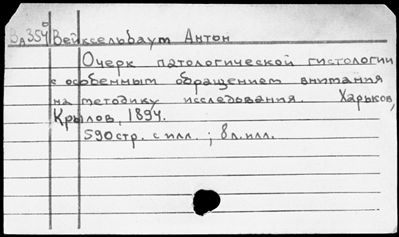 Вд354 Вейксельбаут Антон
Очерк патологической гистологии
с особенным обращением внимания
на методику исследования. Харьков,
Крылов, 1894.
590стр. с илл. ; 8л.илл.